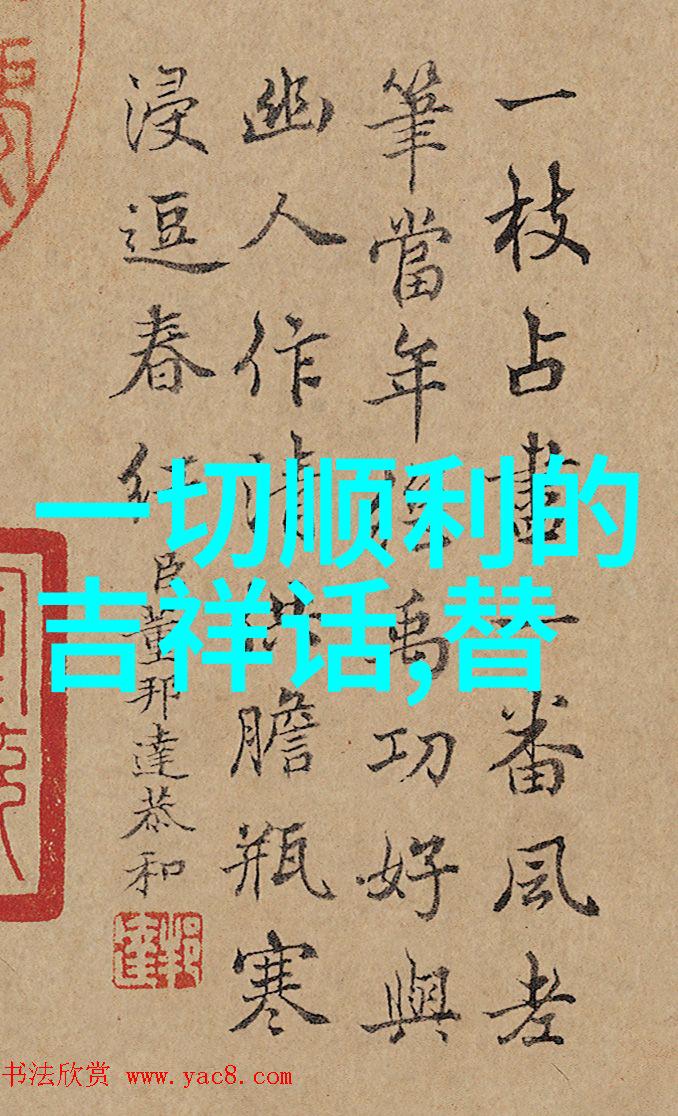 一枝占盡一番風老
筆當年 禹功好與
幽人作清供膽瓶寒
浸逗春紅
臣董邦達恭和
一切顺利的
吉祥话,替
书法欣赏 www.yac8.com